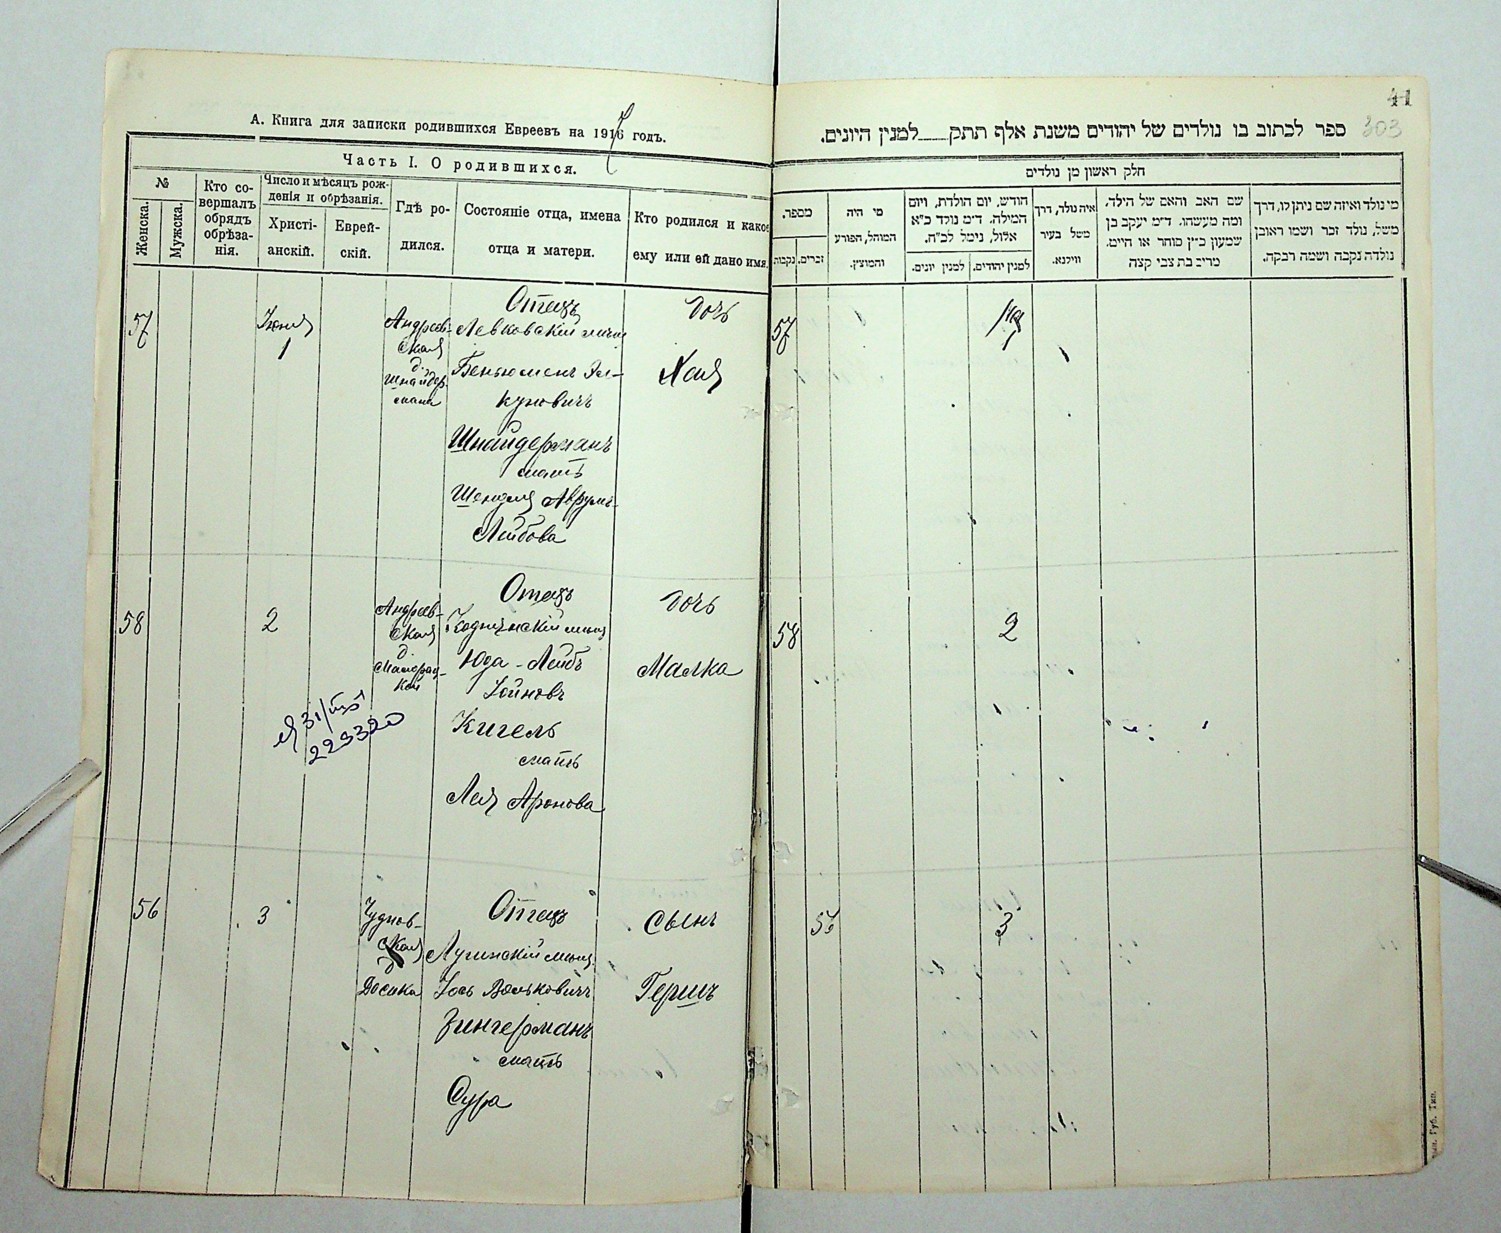 А. Книга для записки родившихся Евреевъ на 1917 годъ.
Часть I. О родившихся.
№
Женска.
Мужска.
Кто со-
вершалъ
обрядъ
обрѣза-
нія.
Число и мѣсяцъ рож-
денія и обрѣзанія.
Христі-
анскій.
Еврей-
скій.
Гдѣ ро-
дился.
Состояніе отца, имена
отца и матери.
Кто родился и какое
ему или ей дано имя.
57
Іюня
1
Андреев-
ская
д.
Шнайдер
мана
Отецъ
Левковскій мѣщ
Беньюменъ Эл-
куновичъ
Шнайдерманъ
мать
Шендля Аврумъ-
Лейбова
дочь
Хая
58
2
Андреев-
ская
д.
Отецъ
Коднянскій мѣщ
Юда-Лейбъ
Іойновъ
Кигель
мать
Лея Аронова
дочь
Малка
31/
223320
56
3
Чуднов-
ская
д
Досика
Отецъ
Лугинскій мѣщ.
Іось Вольковичъ
Зингерманъ
мать
Сура
сынъ
Гершъ
41
303
ספר לכתוב בו נולדים של יהודים משנת אלף תתק____למנין היונים.
חלק ראשון מן נולדים
מספר.
נקבות
זכרים.
מי היה
המוהל, הפורע
והמוצץ.
חודש, יום הולדת, ויום
המילה. ד״מ נולד כ״א
אלול, נימל לכ״ח.
למנין יונים.
למנין יהודים.
איה נולד, דרך
משל בעיר
ווילנא.
שם האב והאם של הילד,
ומה מעשהו. ד״מ יעקב בן
שמעון כ״ץ סוחר או חייט.
מריב בת צבי קצה
מי נולד ואיזה שם ניתן לו, דרך
משל, נולד זכר ושמו ראובן
נולדה נקבה ושמה רבקה.
57
1
58
2
56
3
Губ. Тип.